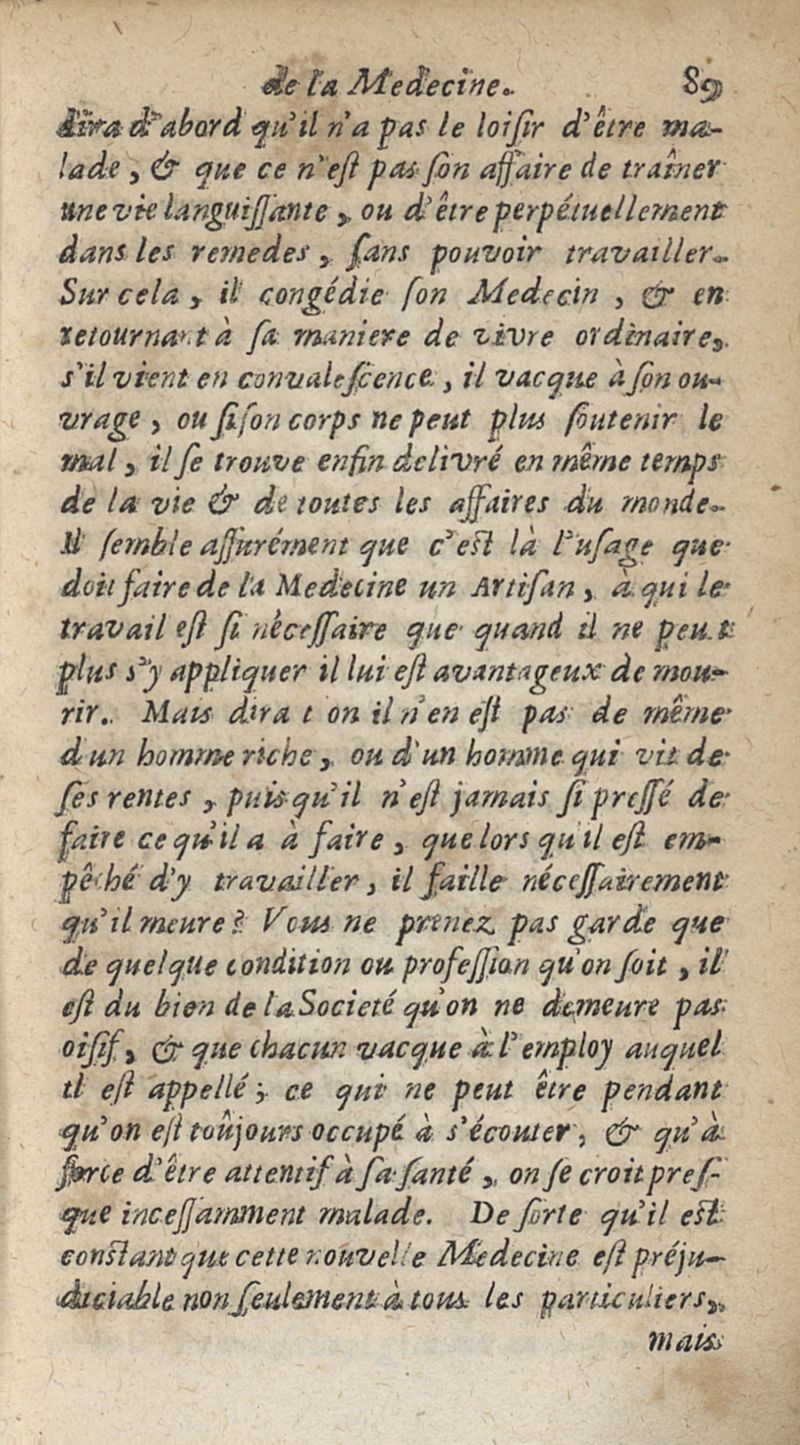 de la Medecine. 89
dira d'abord qu'il n'a pas le loiſir d'être ma-
lade, & que ce n'eſt pas ſon affaire de traîner
une vie languiſſante, ou d'être perpétuellement
dans les remedes, ſans pouvoir travailler.
Sur cela, il congédie ſon Medecin, & en
retournant à ſa maniere de vivre ordinaire,
s'il vient en convaleſcence, il vacque à ſon ou-
vrage, ou ſi ſon corps ne peut plus ſoutenir le
mal, il ſe trouve enfin delivré en même temps
de la vie & de toutes les affaires du monde.
Il ſemble aſſurément que c'eſt là l'uſage que
doit faire de la Medecine un Artiſan, à qui le
travail eſt ſi néceſſaire que quand il ne peut
plus s'y appliquer il lui eſt avantageux de mou-
rir. Mais dira t on il n'en eſt pas de même
d'un homme riche, ou d'un homme qui vit de
ſes rentes, puis qu'il n'eſt jamais ſi preſſé de
faire ce qu'il a à faire, que lors qu'il eſt em-
pêché d'y travailler, il faille néceſſairement
qu'il meure? Vous ne prenez pas garde que
de quelque condition ou profeſſion qu'on ſoit, il
eſt du bien de la Societé qu'on ne demeure pas
oiſif, & que chacun vacque à l'employ auquel
il eſt appellé; ce qui ne peut être pendant
qu'on eſt toûjours occupé à s'écouter, & qu'à
force d'être attentif à ſa ſanté, on ſe croit preſ-
que inceſſamment malade. De ſorte qu'il eſt
conſtant que cette nouvelle Medecine eſt préju-
diciable non ſeulement à tous les particuliers,
mais